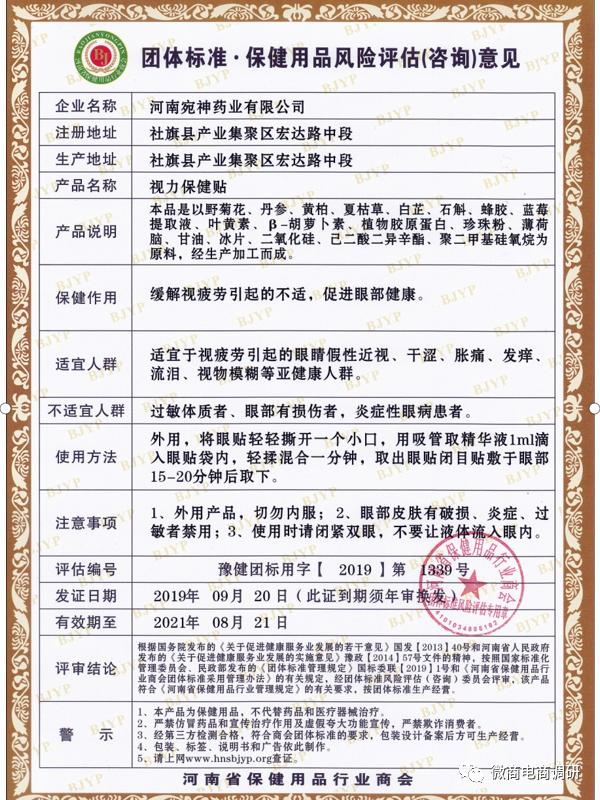 BJ
团体标准·保健用品风险评估(咨询)意见
企业名称 河南宛神药业有限公司
注册地址 社旗县产业集聚区宏达路中段
生产地址 社旗县产业集聚区宏达路中段
产品名称 视力保健贴
产品说明
本品是以野菊花、丹参、黄柏、夏枯草、白芷、石斛、蜂胶、蓝莓
提取液、叶黄素、β-胡萝卜素、植物胶原蛋白、珍珠粉、薄荷
脑、甘油、冰片、二氧化硅、己二酸二异辛酯、聚二甲基硅氧烷为
原料，经生产加工而成。
保健作用 缓解视疲劳引起的不适，促进眼部健康。
适宜人群
适宜于视疲劳引起的眼睛假性近视、干涩、胀痛、发痒、
流泪、视物模糊等亚健康人群。
不适宜人群 过敏体质者、眼部有损伤者，炎症性眼病患者。
使用方法
外用，将眼贴轻轻撕开一个小口，用吸管取精华液1ml滴
入眼贴袋内，轻揉混合一分钟，取出眼贴闭目贴敷于眼部
15-20分钟后取下。
注意事项
1、外用产品，切勿内服；2、眼部皮肤有破损、炎症、过
敏者禁用；3、使用时请闭紧双眼，不要让液体流入眼内。
评估编号 豫健团标用字【 2019 】第 1339 号
发证日期 2019年 09月 20日（此证到期须年审换发）
有效期至 2021年 08月 21日
河南省保健用品行业商会
团体标准风险评估专用章
评审结论
根据国务院发布的《关于促进健康服务业发展的若干意见》国发【2013】40号和河南省人民政府
发布的《关于促进健康服务业发展的实施意见》豫政【2014】57号文件的精神，按照国家标准化
管理委员会、民政部发布的《团体标准管理规定》国标委联【2019】1号和《河南省保健用品行
业商会团体标准采用管理办法》的有关规定，经团体标准风险评估（咨询）委员会评审，该产品
符合《河南省保健用品行业管理规定》的有关要求，按团体标准生产经营。
警 示
1、本产品为保健用品，不代替药品和医疗器械治疗。
2、严禁仿冒药品和宣传治疗作用及虚假夸大功能宣传，严禁欺诈消费者。
3、经第三方检测合格，符合商会团体标准的要求，包装设计备案后方可生产经营。
4、包装、标签、说明书和广告依此制作。
5、请上网www.hnsbjyp.org查证。
河南省保健用品行业商会
微商电商调研